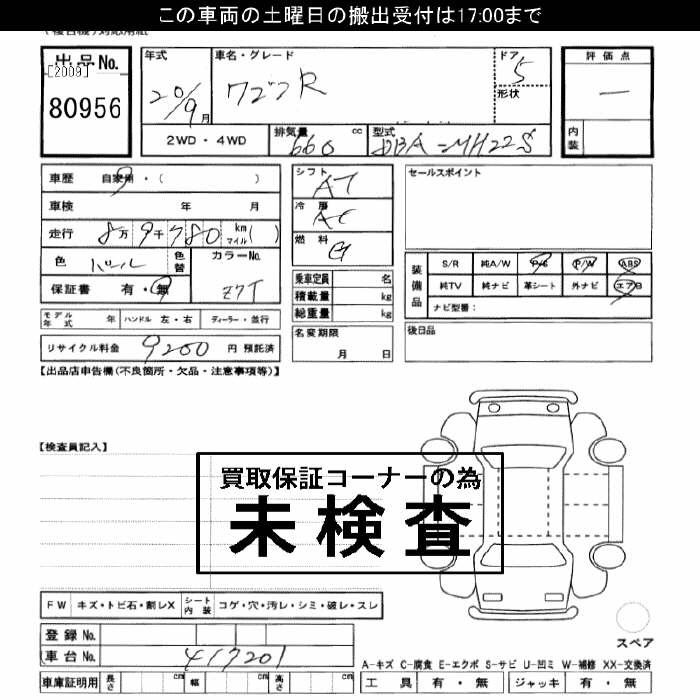 この車両の土曜日の搬出受付は17:00まで
出品No.
[2009]
80956
年式
20/9 月
車名・グレード
ワゴンR
ドア
5
形状
評価点
―
内装
2WD・4WD
排気量
660 cc
型式
DBA-MH22S
車歴 自家用・( )
車検 年 月
走行 8万9千780 km マイル( )
色 パール 色替
カラーNo.
Z7T
保証書 有・無
モデル年式 年 ハンドル 左・右 ディーラー・並行
リサイクル料金 9200 円 預託済
シフト
AT
冷房
AC
燃料
G
乗車定員 名
積載量 kg
総重量 kg
名変期限
月 日
セールスポイント
装備品
S/R 純A/W P/S P/W ABS
純TV 純ナビ 革シート 外ナビ エアB
ナビ型番:
後日品
【出品店申告欄(不良箇所・欠品・注意事項等)】
【検査員記入】
買取保証コーナーの為
未検査
FW キズ・トビ石・割レX シート内装 コゲ・穴・汚レ・シミ・破レ・スレ
登録No.
車台No. 417201
車庫証明用 長さ cm 幅 cm 高さ cm
スペア
A-キズ C-腐食 E-エクボ S-サビ U-凹ミ W-補修 XX-交換済
工具 有・無 ジャッキ 有・無